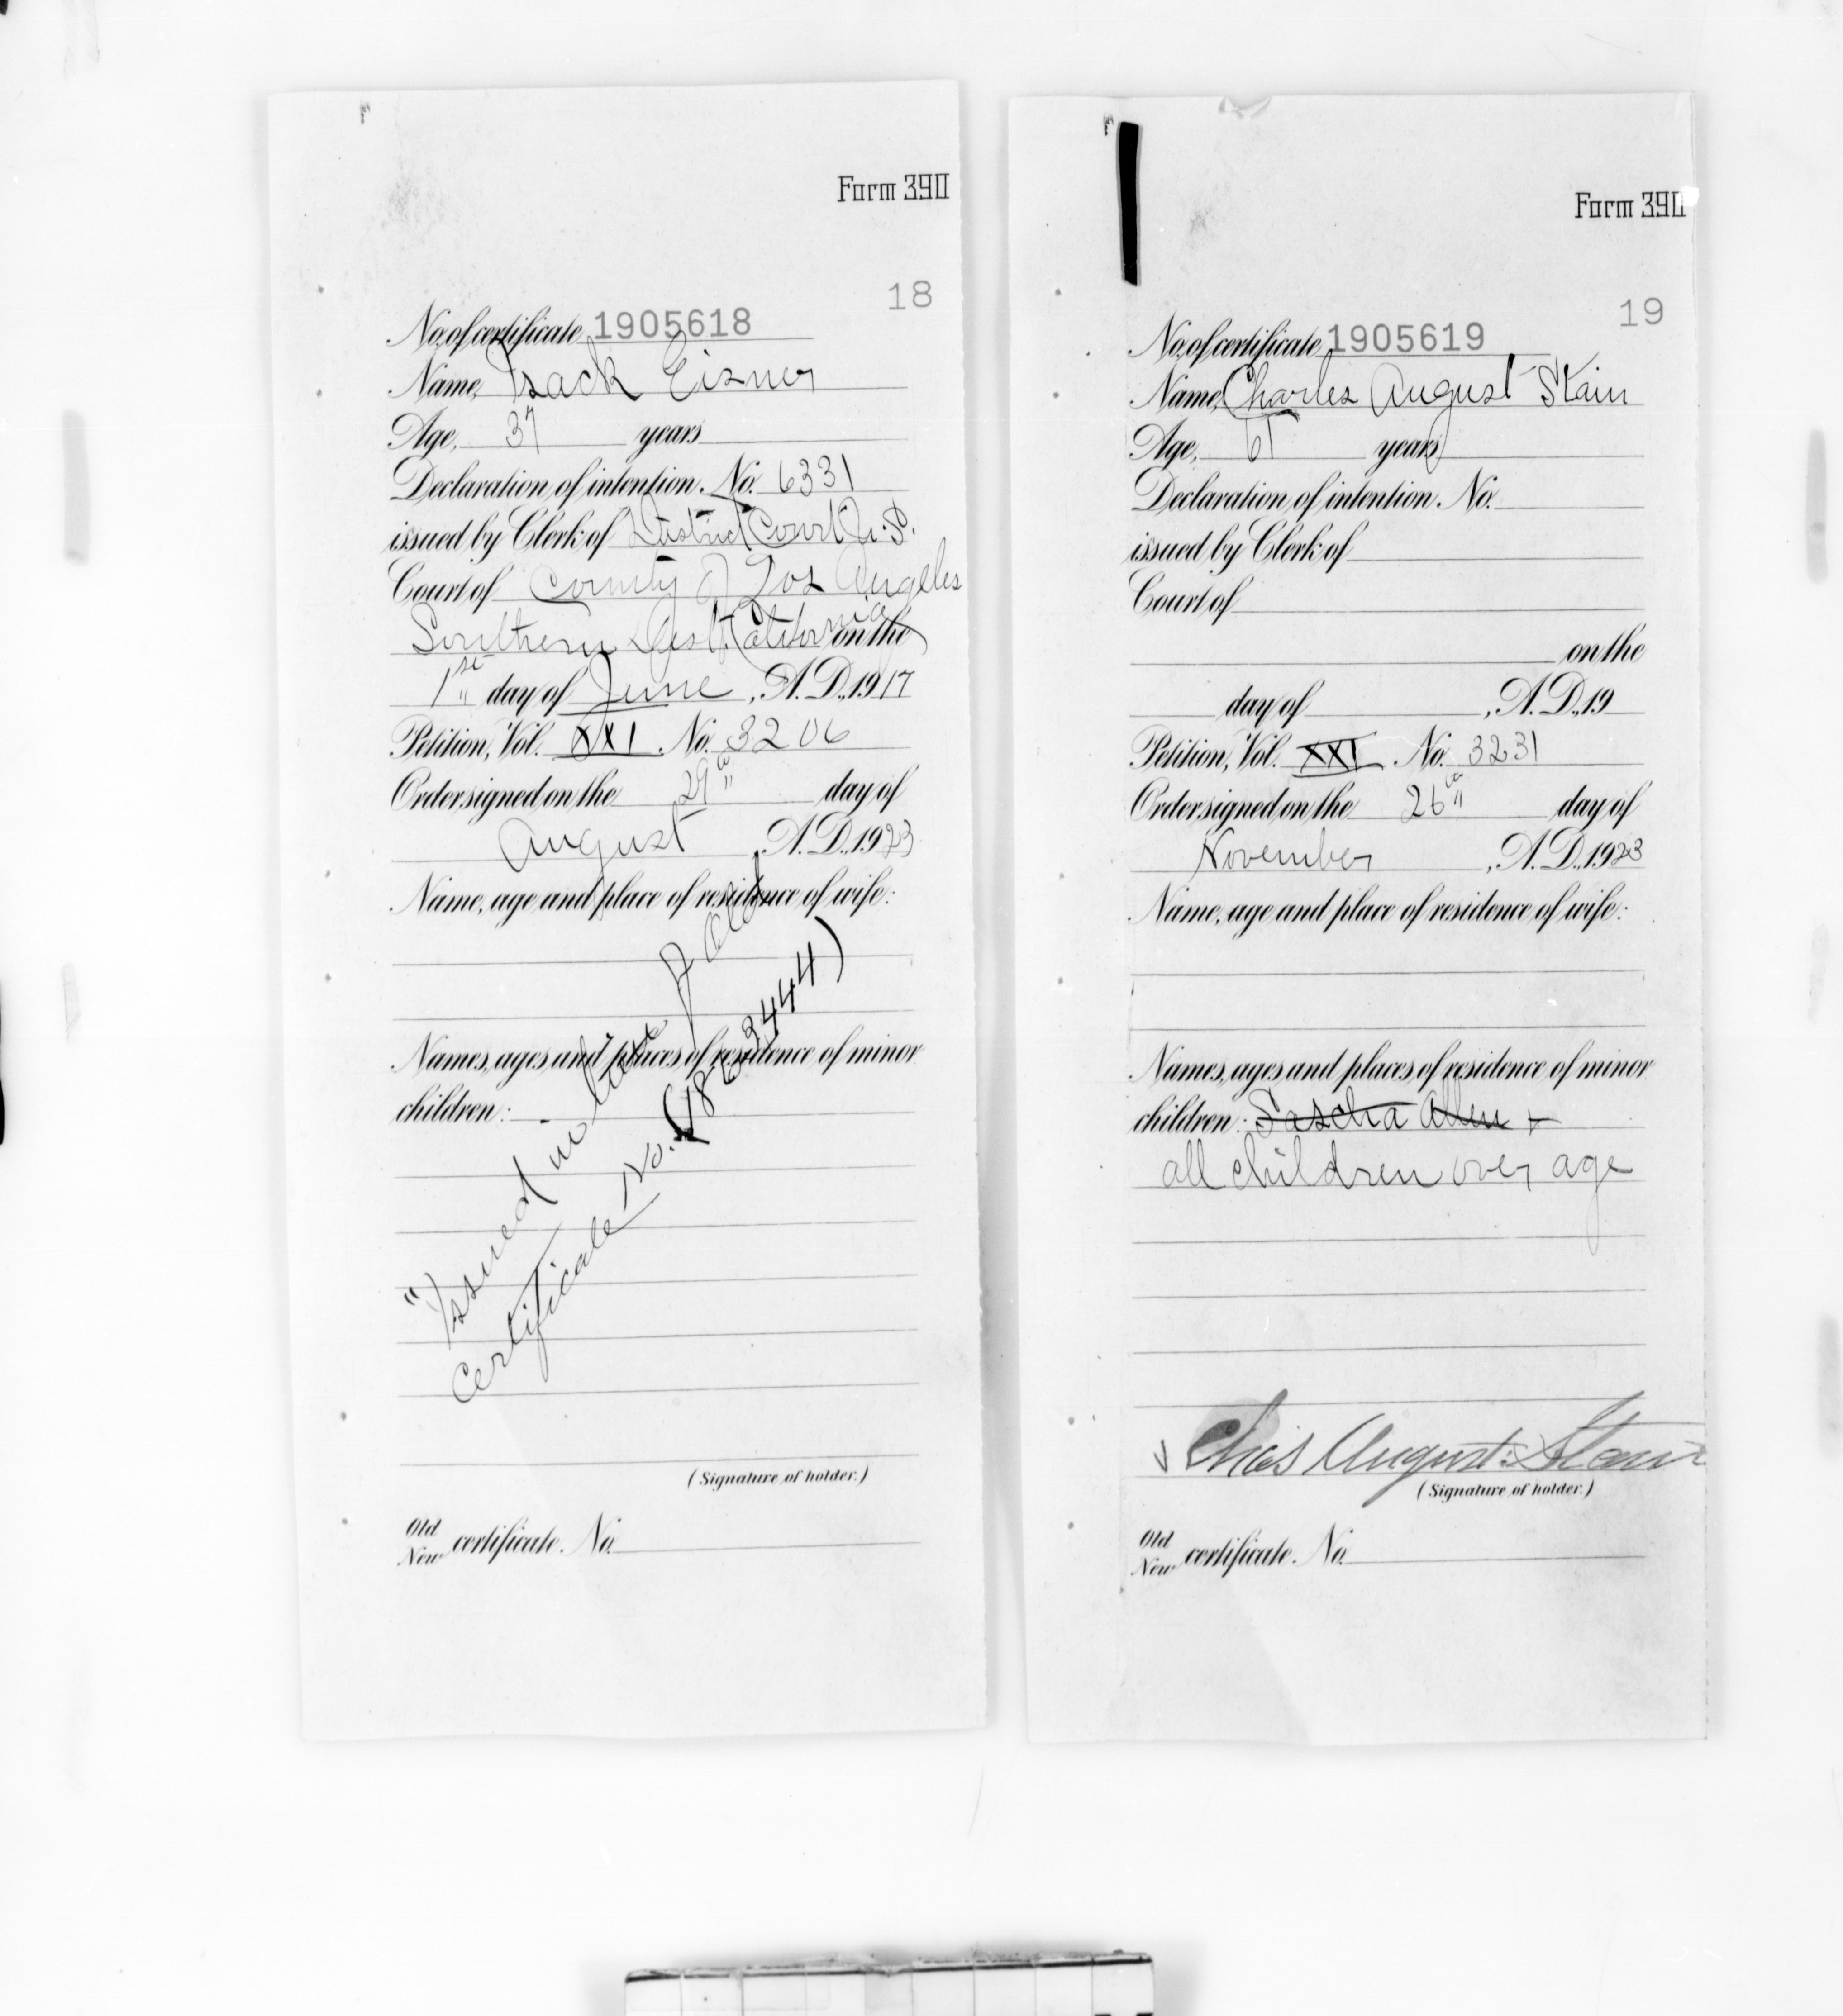 Form 390
18
No. of certificate 1905618
Name, Isack Eisner
Age, 37 years
Declaration of intention No. 6331
issued by Clerk of District Court U.S.
Court of County of Los Angeles
Southern Dist. California on the
1st day of June, A.D., 1917
Petition, Vol. XXI. No. 3206
Order signed on the 29th day of
August, A.D., 1923
Name, age and place of residence of wife:
Names, ages and places of residence of minor
children: -
"Issued in lieu of old
Certificate No. 
(Signature of holder.)
Old
New certificate. No.
Form 390
19
No. of certificate 1905619
Name, Charles August Stain
Age, years
Declaration of intention. No.
issued by Clerk of
Court of
on the
day of , A.D., 19
Petition, Vol. XXI No. 3231
Order signed on the 26th day of
November, A.D., 1923
Name, age and place of residence of wife:
Names, ages and places of residence of minor
children: Sascha Allen
all children over age
Chas August Stain
(Signature of holder.)
Old
New certificate. No.